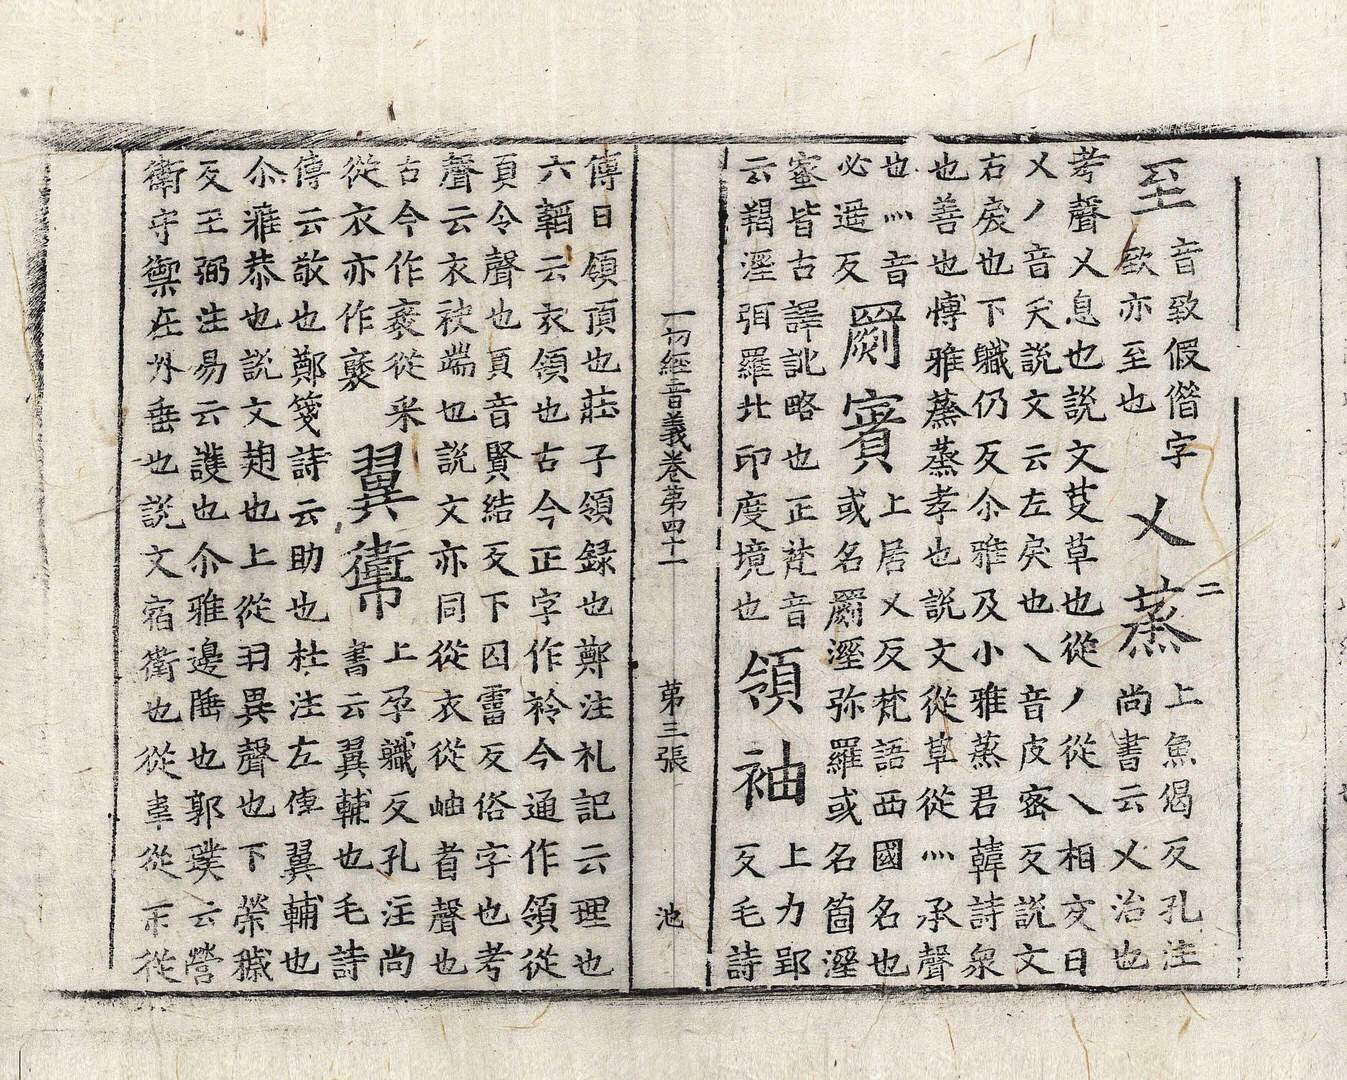 至
音致假借字
致亦至也
乂蒸
二
上魚偈反孔注
尚書云乂治也
考聲乂息也說文芟草也從丿從乀相交曰
乂丿音天說文云左戾也乀音皮密反說文
右戾也下軄仍反尒雅及小雅蒸君韓詩衆
也善也愽雅蒸蒸孝也說文從草從灬承聲
也灬音
必遥反
罽賓
上居乂反梵語西國名也
或名罽溼弥羅或名箇溼
蜜皆古譯訛略也正梵音
云羯溼弭羅北印度境也
領袖
上力郢
反毛詩
一切經音義卷第四十一 第三張 池
傳曰領頂也莊子領録也鄭注礼記云理也
六韜云衣領也古今正字作衿今通作領從
頁令聲也頁音賢結反下囚霤反俗字也考
聲云衣袂端也說文亦同從衣從岫省聲也
古今作褎從采
從衣亦作褏
翼衛
上孕軄反孔注尚
書云翼輔也毛詩
傳云敬也鄭箋詩云助也杜注左傳翼輔也
尒雅恭也說文翅也上從羽異聲也下榮穢
反王弼注易云護也尒雅邊陲也郭璞云營
衛守禦在外垂也說文宿衛也從韋從帀從